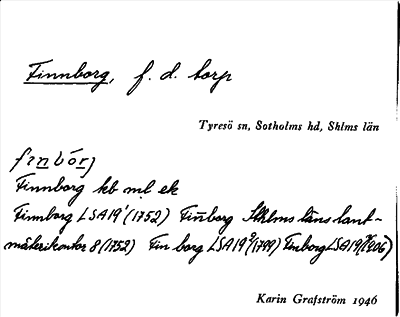 Finnborg, f. d. torp
Tyresö sn, Sotholms hd, Shlms län
fɪnbórj
Finnborg kb ml ek
Finnborg LSA19¹(1752) Fin̄borg Sthlms läns lant-
mäterikontor 8 (1752) Fin borg LSA19⁹(1799) FinborgLSA19(1906)
Karin Grafström 1946